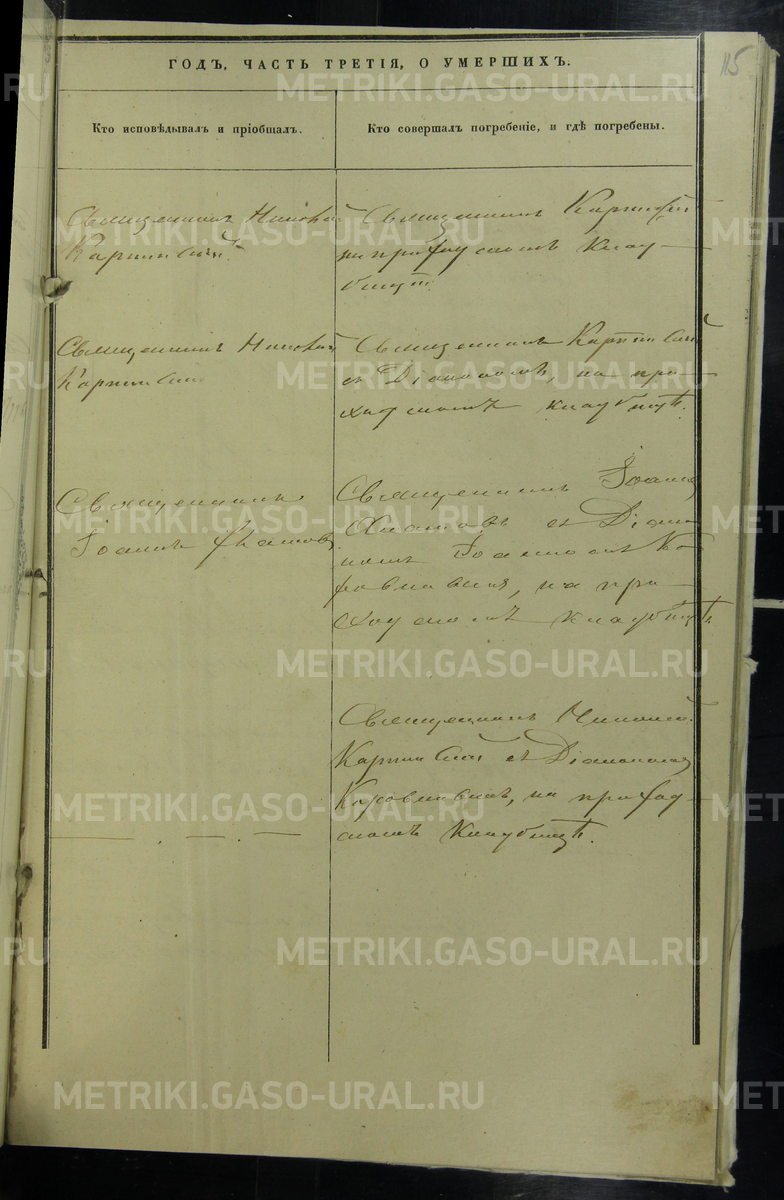 115
ГОДЪ, ЧАСТЬ ТРЕТІЯ, О УМЕРШИХЪ.
Кто исповѣдывалъ и пріобщалъ.
Кто совершалъ погребеніе, и гдѣ погребены.
Священникъ Николай
Карпинскій.
Священникъ Карпинскій
на приходскомъ клад-
бищѣ.
Священникъ Николай
Карпинскій
Священникъ Карпинскій
съ Діакономъ, на при-
ходскомъ кладбищѣ.
Священникъ
Іоаннъ
Священникъ Іоаннъ
съ Діако-
номъ Іоанномъ
на при-
ходскомъ кладбищѣ
Священникъ Николай
Карпинскій съ Діакономъ
на приход-
скомъ кладбищѣ.
METRIKI.GASO-URAL.RU